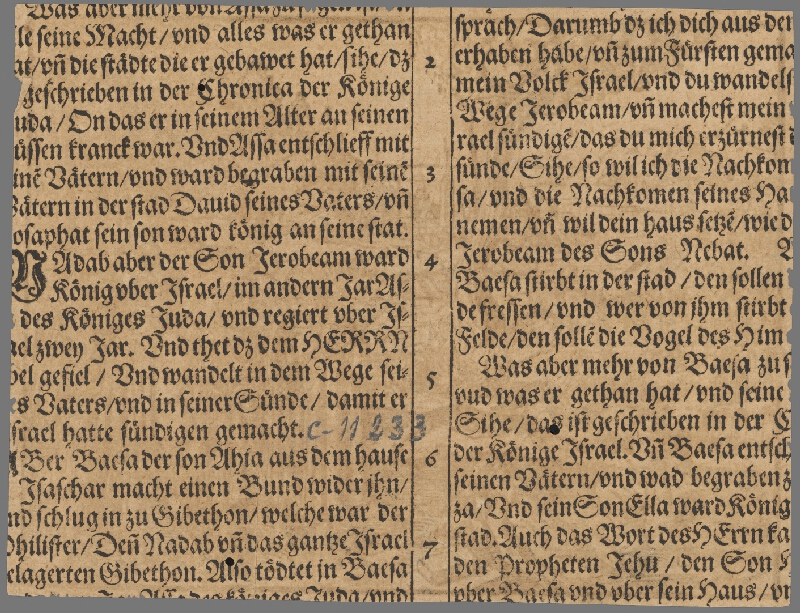 Was aber mehr von Assa zu
le seine Macht/ vnd alles was er gethan
at/ vñ die städte die er gebawet hat/ sihe/ dz
geschrieben in der Chronica der Könige
uda/ On das er in seinem Alter an seinen
üssen kranck war. Vnd Assa entschlieff mit
inẽ Vätern/ vnd ward begraben mit seinẽ
Vätern in der stad Dauid seines Vaters/ vñ
osaphat sein son ward könig an seine stat.
NAdab aber der Son Jerobeam ward
König vber Jsrael/ im andern Jar As-
des Königes Juda/ vnd regiert vber Js-
ael zwey Jar. Vnd thet dz dem HERRN
bel gefiel/ Vnd wandelt in dem Wege sei-
es Vaters/ vnd in seiner Sünde/ damit er
srael hatte sündigen gemacht. C-11233
ABer Baesa der son Ahia aus dem hause
Jsaschar macht einen Bund wider jhn/
nd schlug in zu Gibethon/ welche war der
Philister/ Deñ Nadab vñ das gantze Jsrael
elagerten Gibethon. Also tödtet jn Baesa
Jar Assa des königes Juda/ vnd
2
3
4
5
6
7
spräch/ Darumb dz ich dich aus dem
erhaben habe/ vñ zum Fürsten gema
mein Volck Jsrael/ vnd du wandels
Wege Jerobeam/ vñ machest mein
rael sündigẽ/ das du mich erzürnest d
sünde/ Sihe/ so wil ich die Nachkom
sa/ vnd die Nachkomen seines Ha
nemen/ vñ wil dein haus setzẽ/ wie d
Jerobeam des Sons Nebat.
Baesa stirbt in der stad/ den sollen
de fressen/ vnd wer von jhm stirbt
Felde/ den sollẽ die Vogel des Him
Was aber mehr von Baesa zu s
vud was er gethan hat/ vnd seine
Sihe/ das ist geschrieben in der C
der Könige Jsrael. Vñ Baesa entsch
seinen Vätern/ vnd wad begraben z
za/ Vnd sein Son Ella ward König
stad. Auch das Wort des HErrn ka
den Propheten Jehu/ den Son H
vber Baesa vnd vber sein Haus/ vn